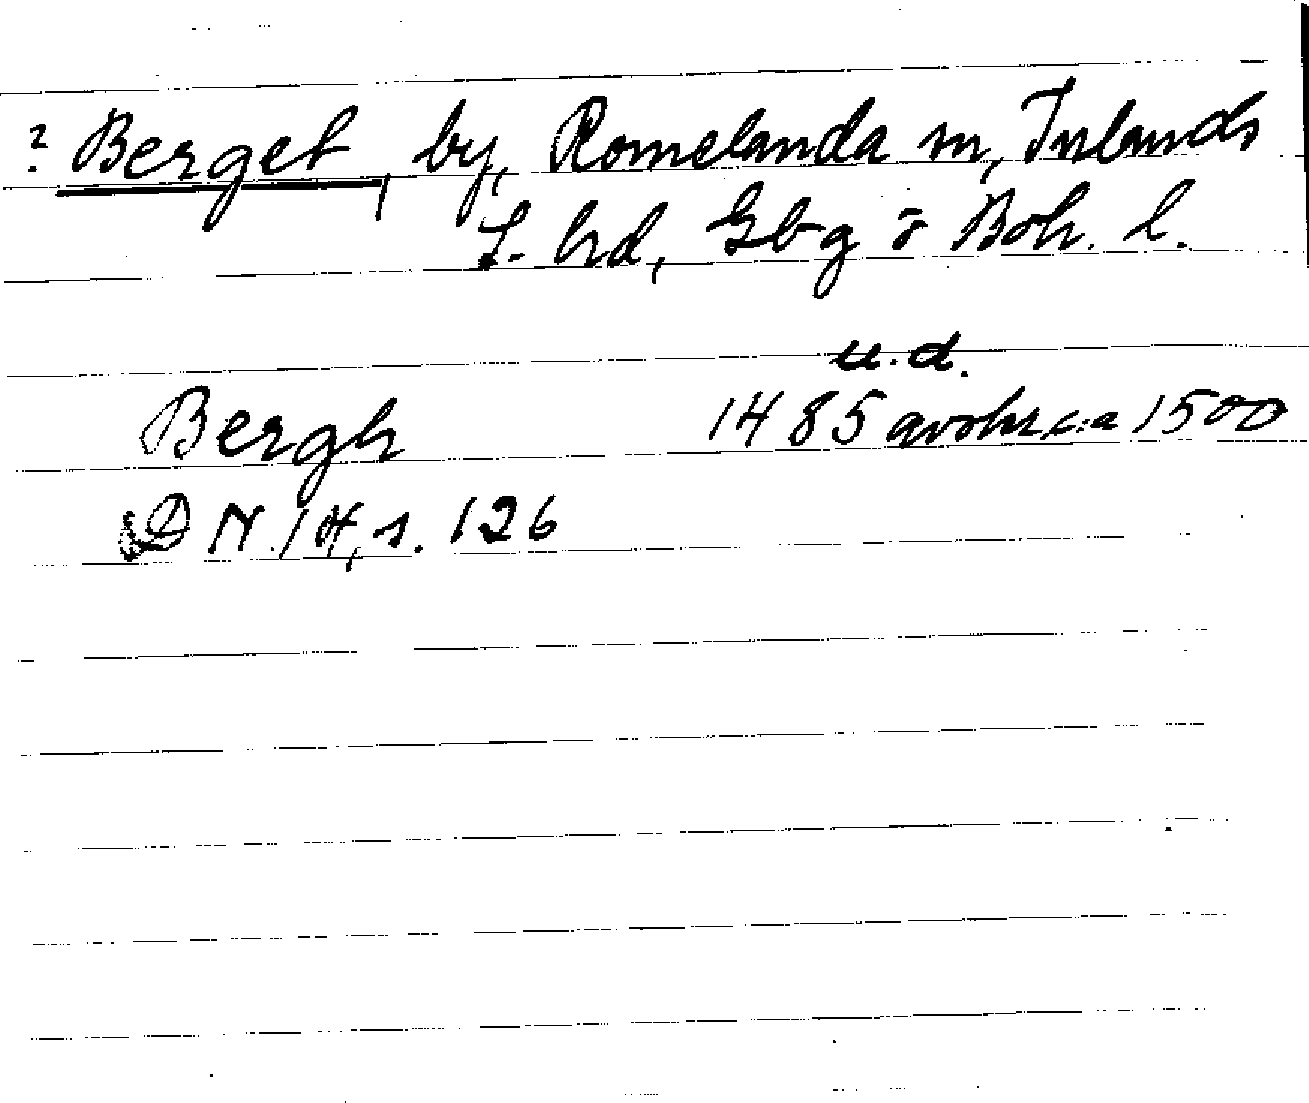 ? Berget, by, Romelanda sn, Inlands
S. hd, Gbg o Boh. l.
u.d.
Bergh 1485 avskr. c:a 1500
DN. 14, s. 126